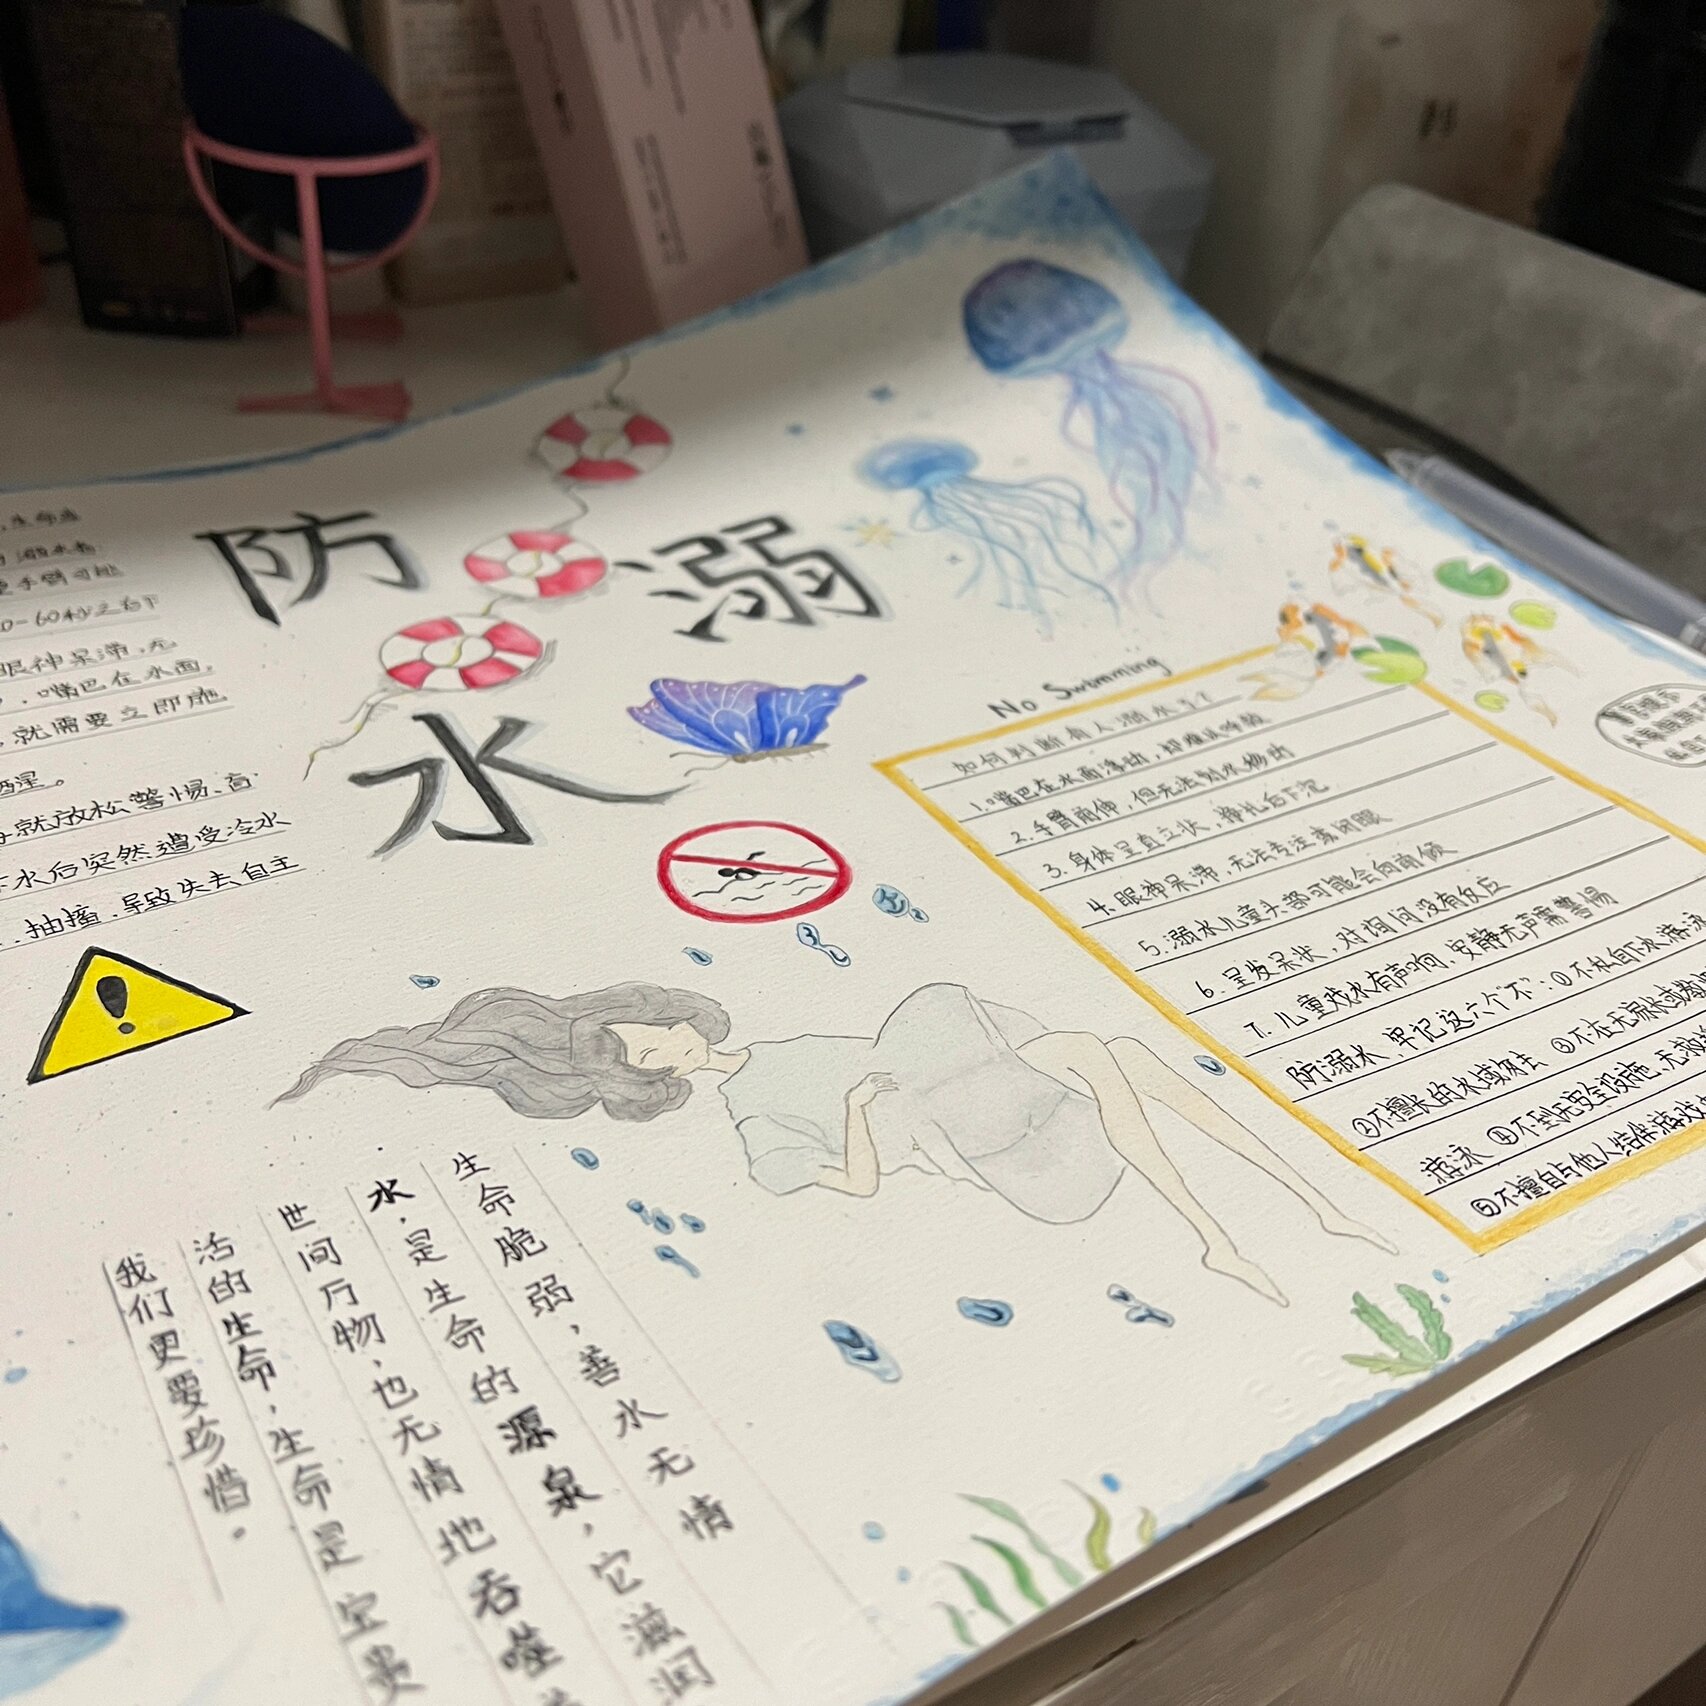 防溺
水
生命当
溺水者
手倒可挑
眼神呆滞,无
嘴巴在水面,
就需要立即施
就放松警惕、高
水后突然遭受冷水
抽搐、导致失去自主
No Swimming
如何判断有人溺水了?
1.嘴巴在水面浮动,却难以呼救
2.手臂前伸,但无法划水物动
3.身体呈直立状,挣扎后下沉
4.眼神呆滞,无法专注或闭眼
5.溺水儿童头部可能会向前倾
6.呈发呆状,对询问没有反应
7.儿童戏水有声响,安静无声需警惕
防溺水,牢记这六个"不":①不私自下水游泳
②不擅长的水域勿去 ③不在无易水域
游泳 ④不到无安全设施、无救
⑤不擅自与他人结伴游戏
生命脆弱,善水无情
水,是生命的源泉,它滋润
世间万物,也无情地吞噬着
活的生命,生命是宝贵
我们更要珍惜。